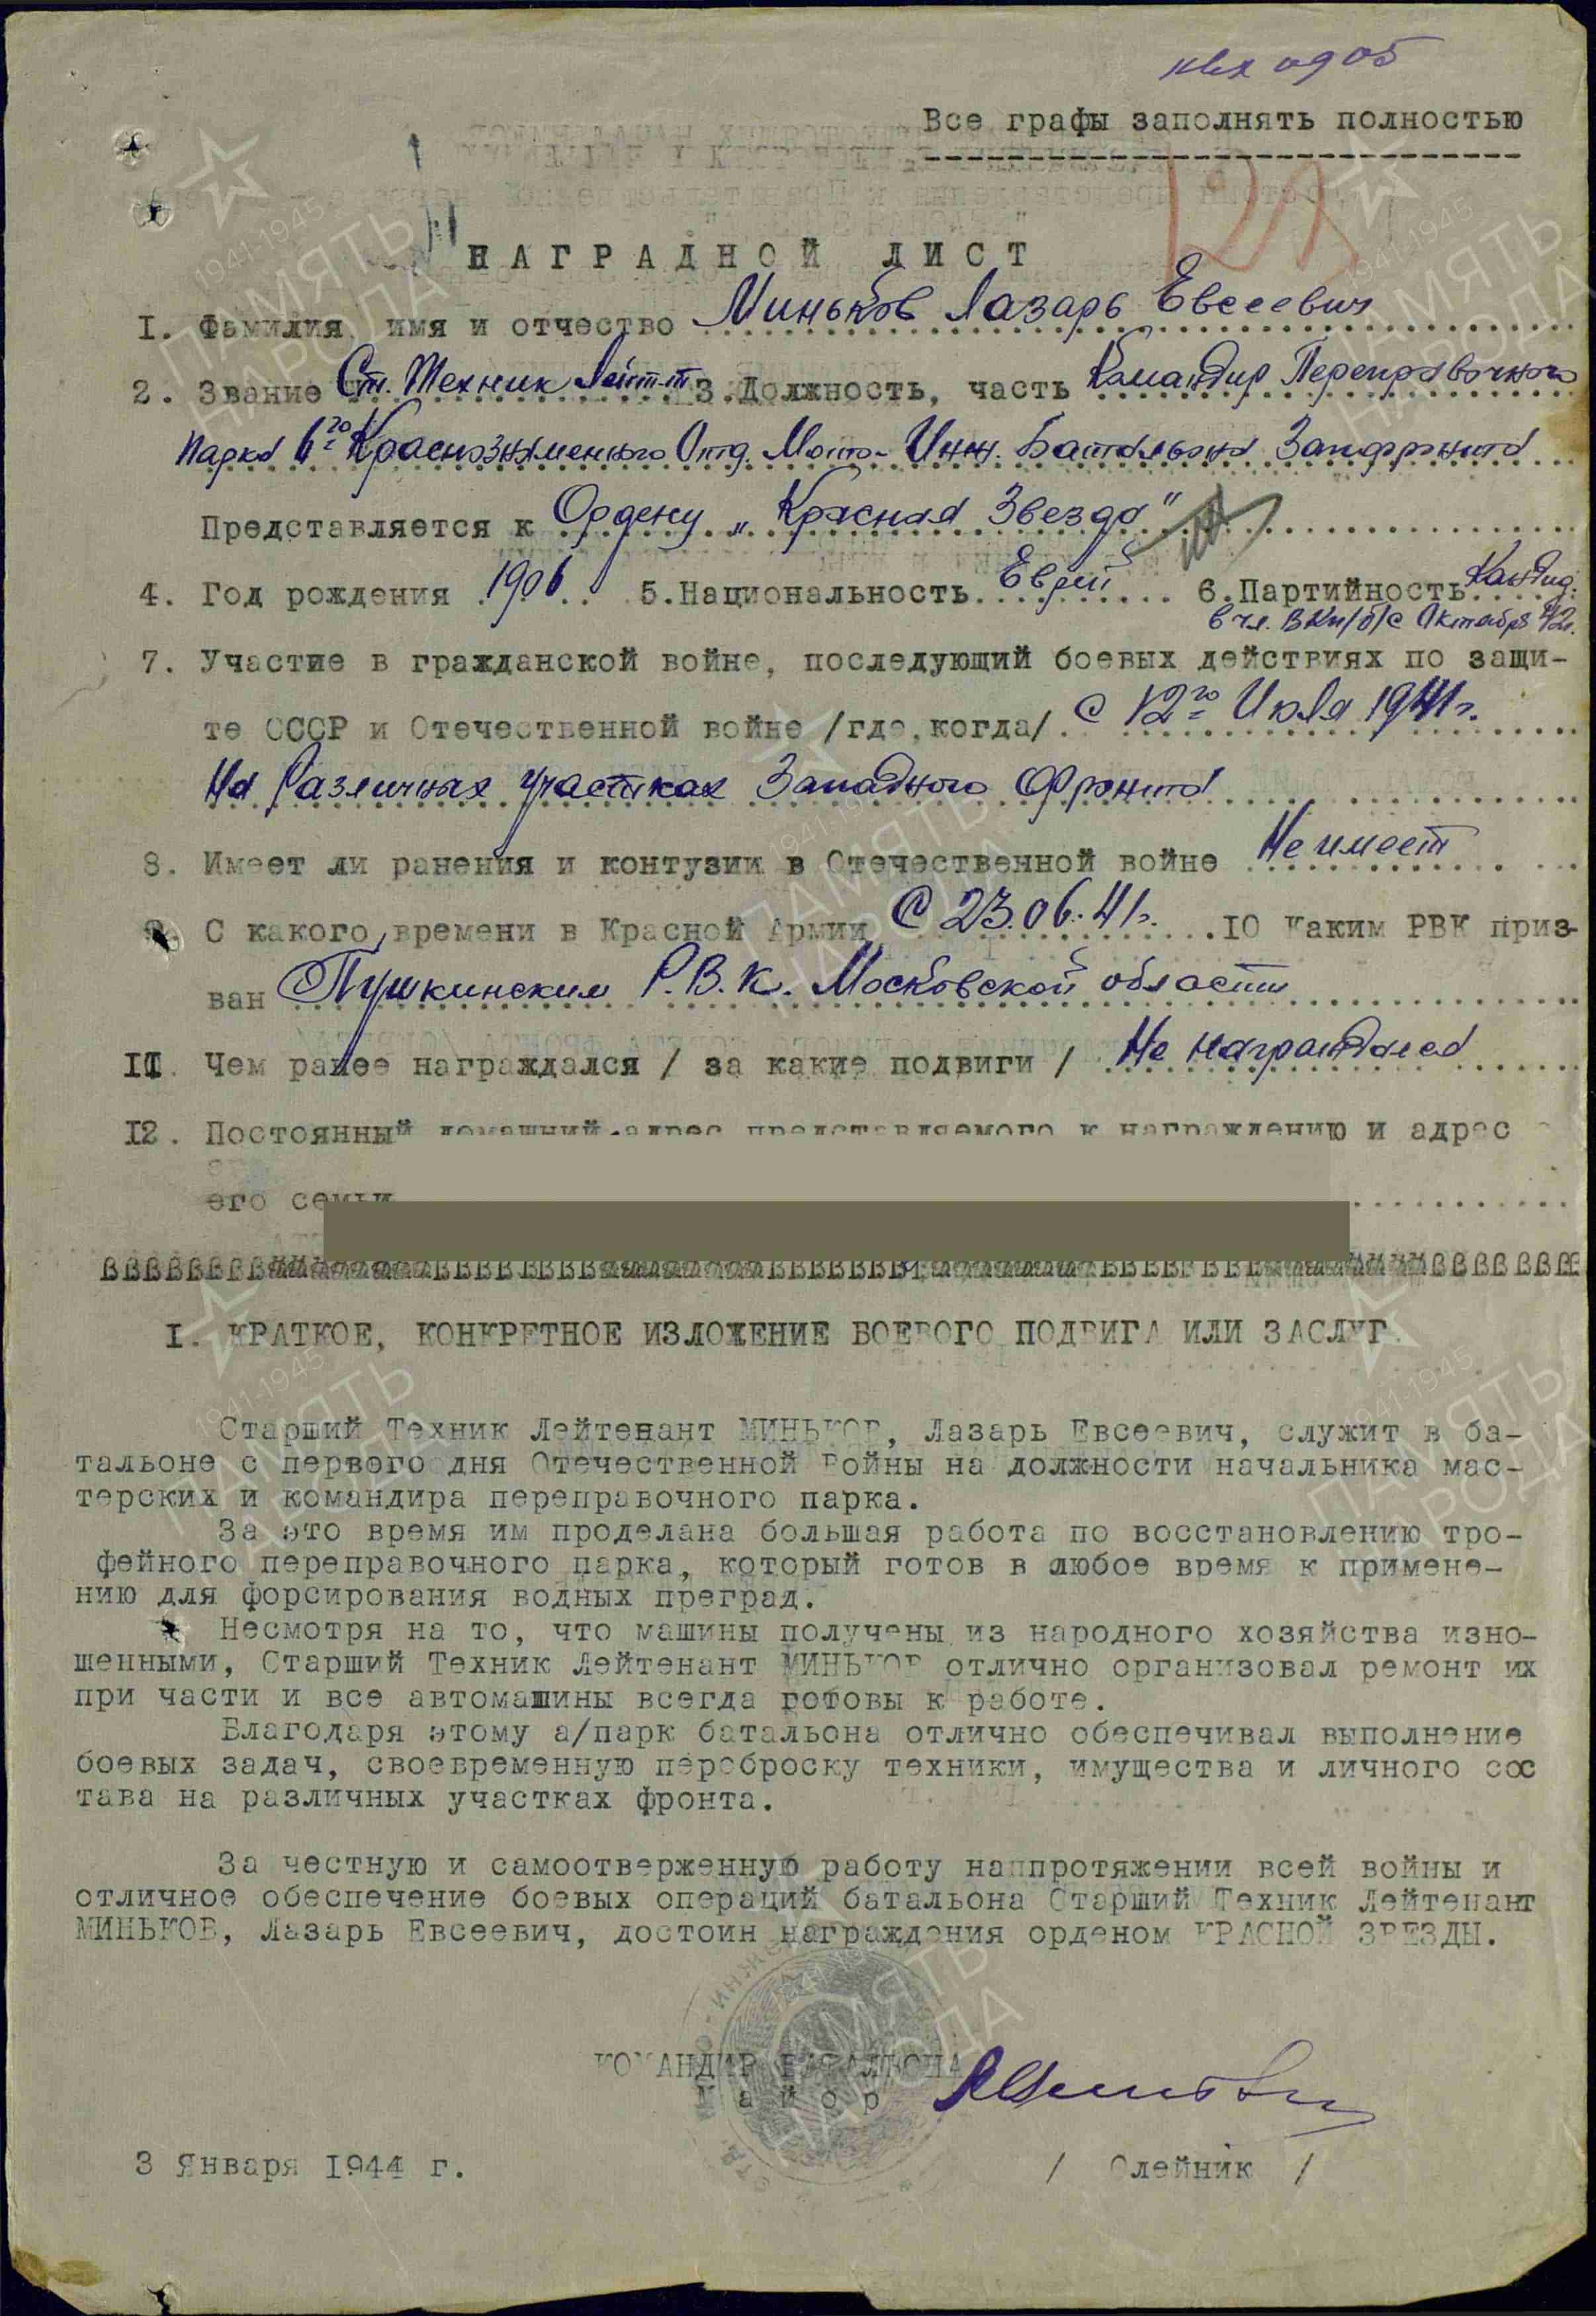 Все графы заполнять полностью
НАГРАДНОЙ ЛИСТ
I. Фамилия, имя и отчество Миньков Лазарь Евсеевич
2. Звание Ст. Техник Лейт-т 3. Должность, часть Командир Переправочного
парка 6го Краснознаменного Отд. Мото-Инж. Батальона Запфронта
Представляется к Ордену „Красная Звезда"
4. Год рождения 1906 5. Национальность Еврей 6. Партийность Кандид.
в чл. ВКП/б/ с Октября 42г.
7. Участие в гражданской войне, последующий боевых действиях по защи-
те СССР и Отечественной войне /где, когда/ С 12го Июля 1941г.
На Различных участках Западного Фронта
8. Имеет ли ранения и контузии в Отечественной войне Не имеет
9. С какого времени в Красной Армии С 23.06.41г. IO Каким РВК приз-
ван Пушкинским Р.В.К. Московской области
II Чем ранее награждался / за какие подвиги / Не награждался
I2. Постоянный домашний адрес представляемого к награждению и адрес
его семьи
I. КРАТКОЕ, КОНКРЕТНОЕ ИЗЛОЖЕНИЕ БОЕВОГО ПОДВИГА ИЛИ ЗАСЛУГ.
Старший Техник Лейтенант МИНЬКОВ, Лазарь Евсеевич, служит в ба-
тальоне с первого дня Отечественной Войны на должности начальника мас-
терских и командира переправочного парка.
За это время им проделана большая работа по восстановлению тро-
фейного переправочного парка, который готов в любое время к примене-
нию для форсирования водных преград.
Несмотря на то, что машины получены из народного хозяйства изно-
шенными, Старший Техник Лейтенант МИНЬКОВ отлично организовал ремонт их
при части и все автомашины всегда готовы к работе.
Благодаря этому а/парк батальона отлично обеспечивал выполнение
боевых задач, своевременную переброску техники, имущества и личного сос
тава на различных участках фронта.
За честную и самоотверженную работу наппротяжении всей войны и
отличное обеспечение боевых операций батальона Старший Техник Лейтенант
МИНЬКОВ, Лазарь Евсеевич, достоин награждения орденом КРАСНОЙ ЗВЕЗДЫ.
КОМАНДИР БАТАЛЬОНА
Майор
3 Января 1944 г. / Олейник /
1941-1945
ПАМЯТЬ
НАРОДА